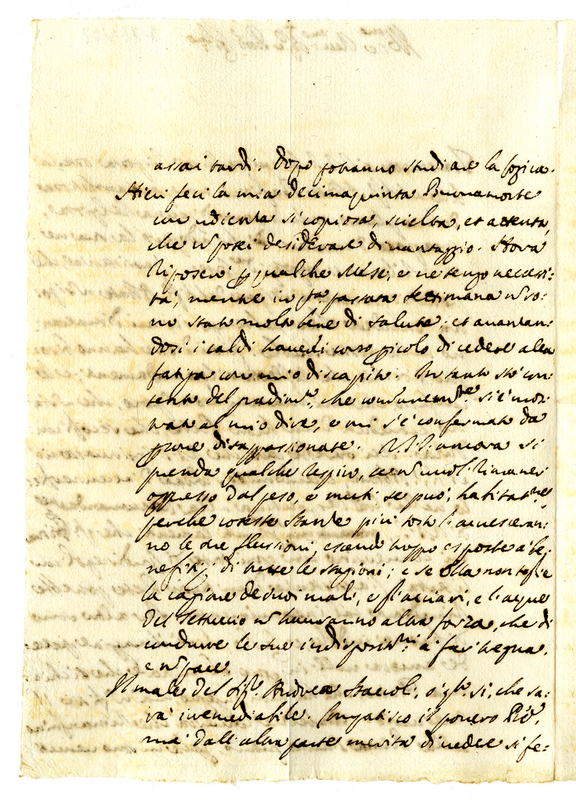 assai tardi. dopo potranno studiare la logica.
Hieri feci la mia decimaquinta Buonamorte
con udienza sì copiosa, scielta, et attenta,
che ñ potei desiderare di vantaggio. Hora
riposerò qualche Mese, e ne tengo necessi-
tà, mentre in passata settimana ñ so-
no stato molto bene di salute: et avanzan-
dosi i caldi haverei corso pericolo di cedere alla
fatiga con mio discapito. In tanto stò con-
tento del gradim.to, che comunem.te si è mos-
trato al mio dire, e mi si è confermato da
disappassionate. V.S. ancora si
prenda qualche respiro, se ñ vuol rimaner
oppresso dal peso, e muti se può,
perche coteste stanze più tosto accresceran-
no le sue flussioni, essend troppo esposte
di tutte le stagioni; e se ella non toglie
la cagione de suoi mali, e l'acque
del Tettuccio ñ havranno altra forza, che di
condurre le sue indisposit.ni à far tregua,
e ñ pace.
Il male del Sig.r Andrea Staccoli, si, che sa-
rà irremediabile. Compatisco il povero
ma dall'altra parte merita di vedersi fe-